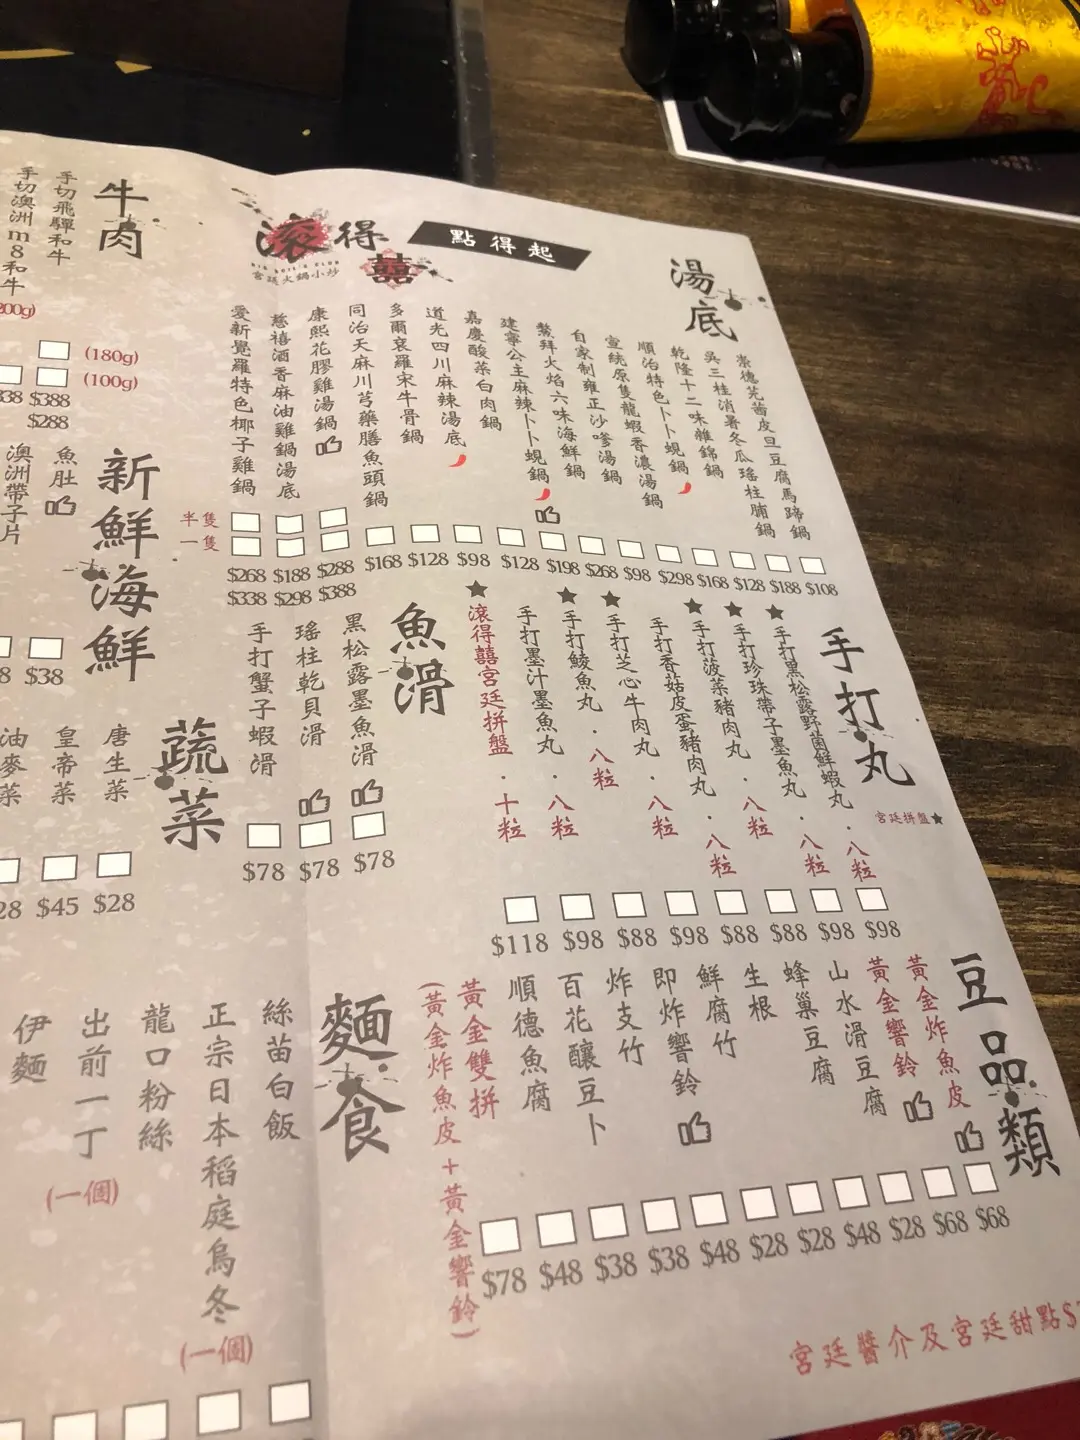 滾得囍
BIG BOIL'S CLUB
宮廷火鍋小炒
點得起
湯底
崇德芫茜皮旦豆腐馬蹄鍋 $108
吳三桂消暑冬瓜瑤柱脯鍋 $188
乾隆十二味雜錦鍋 $128
順治特色卜卜蜆鍋 $168
宣統原隻龍蝦香濃湯鍋 $298
自家制雍正沙嗲湯鍋 $98
鰲拜火焰六味海鮮鍋 $268
建寧公主麻辣卜卜蜆鍋 $198
嘉慶酸菜白肉鍋 $128
道光四川麻辣湯底 $98
多爾袞羅宋牛骨鍋 $128
同治天麻川芎藥膳魚頭鍋 $168
康熙花膠雞湯鍋 $288 $388
慈禧酒香麻油雞鍋湯底 $188 $298
愛新覺羅特色椰子雞鍋 $268 $338
半隻
一隻
手打丸
宮廷拼盤★
★手打黑松露野菌鮮蝦丸．八粒 $98
★手打珍珠帶子墨魚丸．八粒 $98
★手打菠菜豬肉丸．八粒 $88
手打香菇皮蛋豬肉丸．八粒 $88
★手打芝心牛肉丸．八粒 $98
★手打鯪魚丸．八粒 $88
手打墨汁墨魚丸．八粒 $98
★滾得囍宮廷拼盤．十粒 $118
魚滑
黑松露墨魚滑 $78
瑤柱乾貝滑 $78
手打蟹子蝦滑 $78
豆品類
黃金炸魚皮 $68
黃金響鈴 $68
山水滑豆腐 $28
蜂巢豆腐 $48
生根 $28
鮮腐竹 $28
即炸響鈴 $48
炸支竹 $38
百花釀豆卜 $38
順德魚腐 $48
黃金雙拼 $78
(黃金炸魚皮+黃金響鈴)
麵食
絲苗白飯
正宗日本稻庭烏冬
(一個)
龍口粉絲
出前一丁
(一個)
伊麵
牛肉
手切飛驒和牛
手切澳洲m8和牛
(180g)
(100g)
$388
$288
新鮮海鮮
魚肚
澳洲帶子片
$38
蔬菜
唐生菜 $28
皇帝菜 $45
油麥菜
宮廷醬介及宮廷甜點$